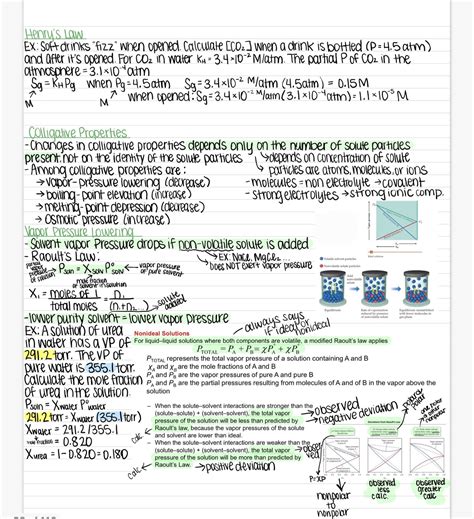 Henry's Law
Ex: Soft drinks "fizz" when opened. Calculate [CO₂] when a drink is bottled (P=4.5atm)
and after it's opened. For CO₂ in water KH = 3.4×10⁻² M/atm. The partial P of CO₂ in the
atmosphere = 3.1×10⁻⁴atm
Sg = KH Pg when Pg = 4.5atm Sg = 3.4×10⁻² M/atm (4.5atm) = 0.15M
M M when opened: Sg = 3.4×10⁻² M/atm (3.1×10⁻⁴atm) = 1.1×10⁻⁵ M
Colligative Properties
- Changes in colligative properties depends only on the number of solute particles
present, not on the identity of the solute particles ↳ depends on concentration of solute
- Among colligative properties are: particles are atoms, molecules, or ions
→ vapor-pressure lowering (decrease) - molecules = non electrolyte → covalent
→ boiling-point elevation (increase) - strong electrolytes → strong ionic comp.
→ melting-point depression (decrease)
→ Osmotic pressure (increase)
Vapor Pressure Lowering
- Solvent vapor Pressure drops if non-volatile solute is added
- Raoult's Law: ↳ EX: NaCl, MgCl₂...
Psoln = Xsolv P°solv ← vapor pressure of pure solvent does NOT exert vapor pressure
mole fraction of solvent in solution
X₁ = moles of 1 / total moles = n₁ / (n₁+n₂) solute added
- lower purity solvent = lower vapor pressure
always says if ideal or nonideal
Ex: A solution of urea
in water has a VP of
291.2 torr. The VP of
pure water is 355.1 torr.
Calculate the mole fraction
of urea in the solution.
Psoln = Xwater P°water
291.2 torr = Xwater (355.1 torr)
Xwater = 291.2/355.1
mole fraction = 0.820
Xurea = 1-0.820 = 0.180
Nonideal Solutions
For liquid–liquid solutions where both components are volatile, a modified Raoult's law applies
PTOTAL = PA + PB = χAP°A + χBP°B
PTOTAL represents the total vapor pressure of a solution containing A and B
χA and χB are the mole fractions of A and B
P°A and P°B are the vapor pressures of pure A and pure B
PA and PB are the partial pressures resulting from molecules of A and of B in the vapor above the
solution
– When the solute–solvent interactions are stronger than the
(solute–solute) + (solvent–solvent), the total vapor
pressure of the solution will be less than predicted by
Raoult's law, because the vapor pressures of the solute
and solvent are lower than ideal.
– When the solute–solvent interactions are weaker than the
(solute–solute) + (solvent–solvent), the total vapor
pressure of the solution will be more than predicted by
Raoult's Law.
→ observed
negative deviation
→ observed
calc.
→ positive deviation
P=XP
nonpolar
to
nonpolar
observed
less
calc.
observed
greater
calc.